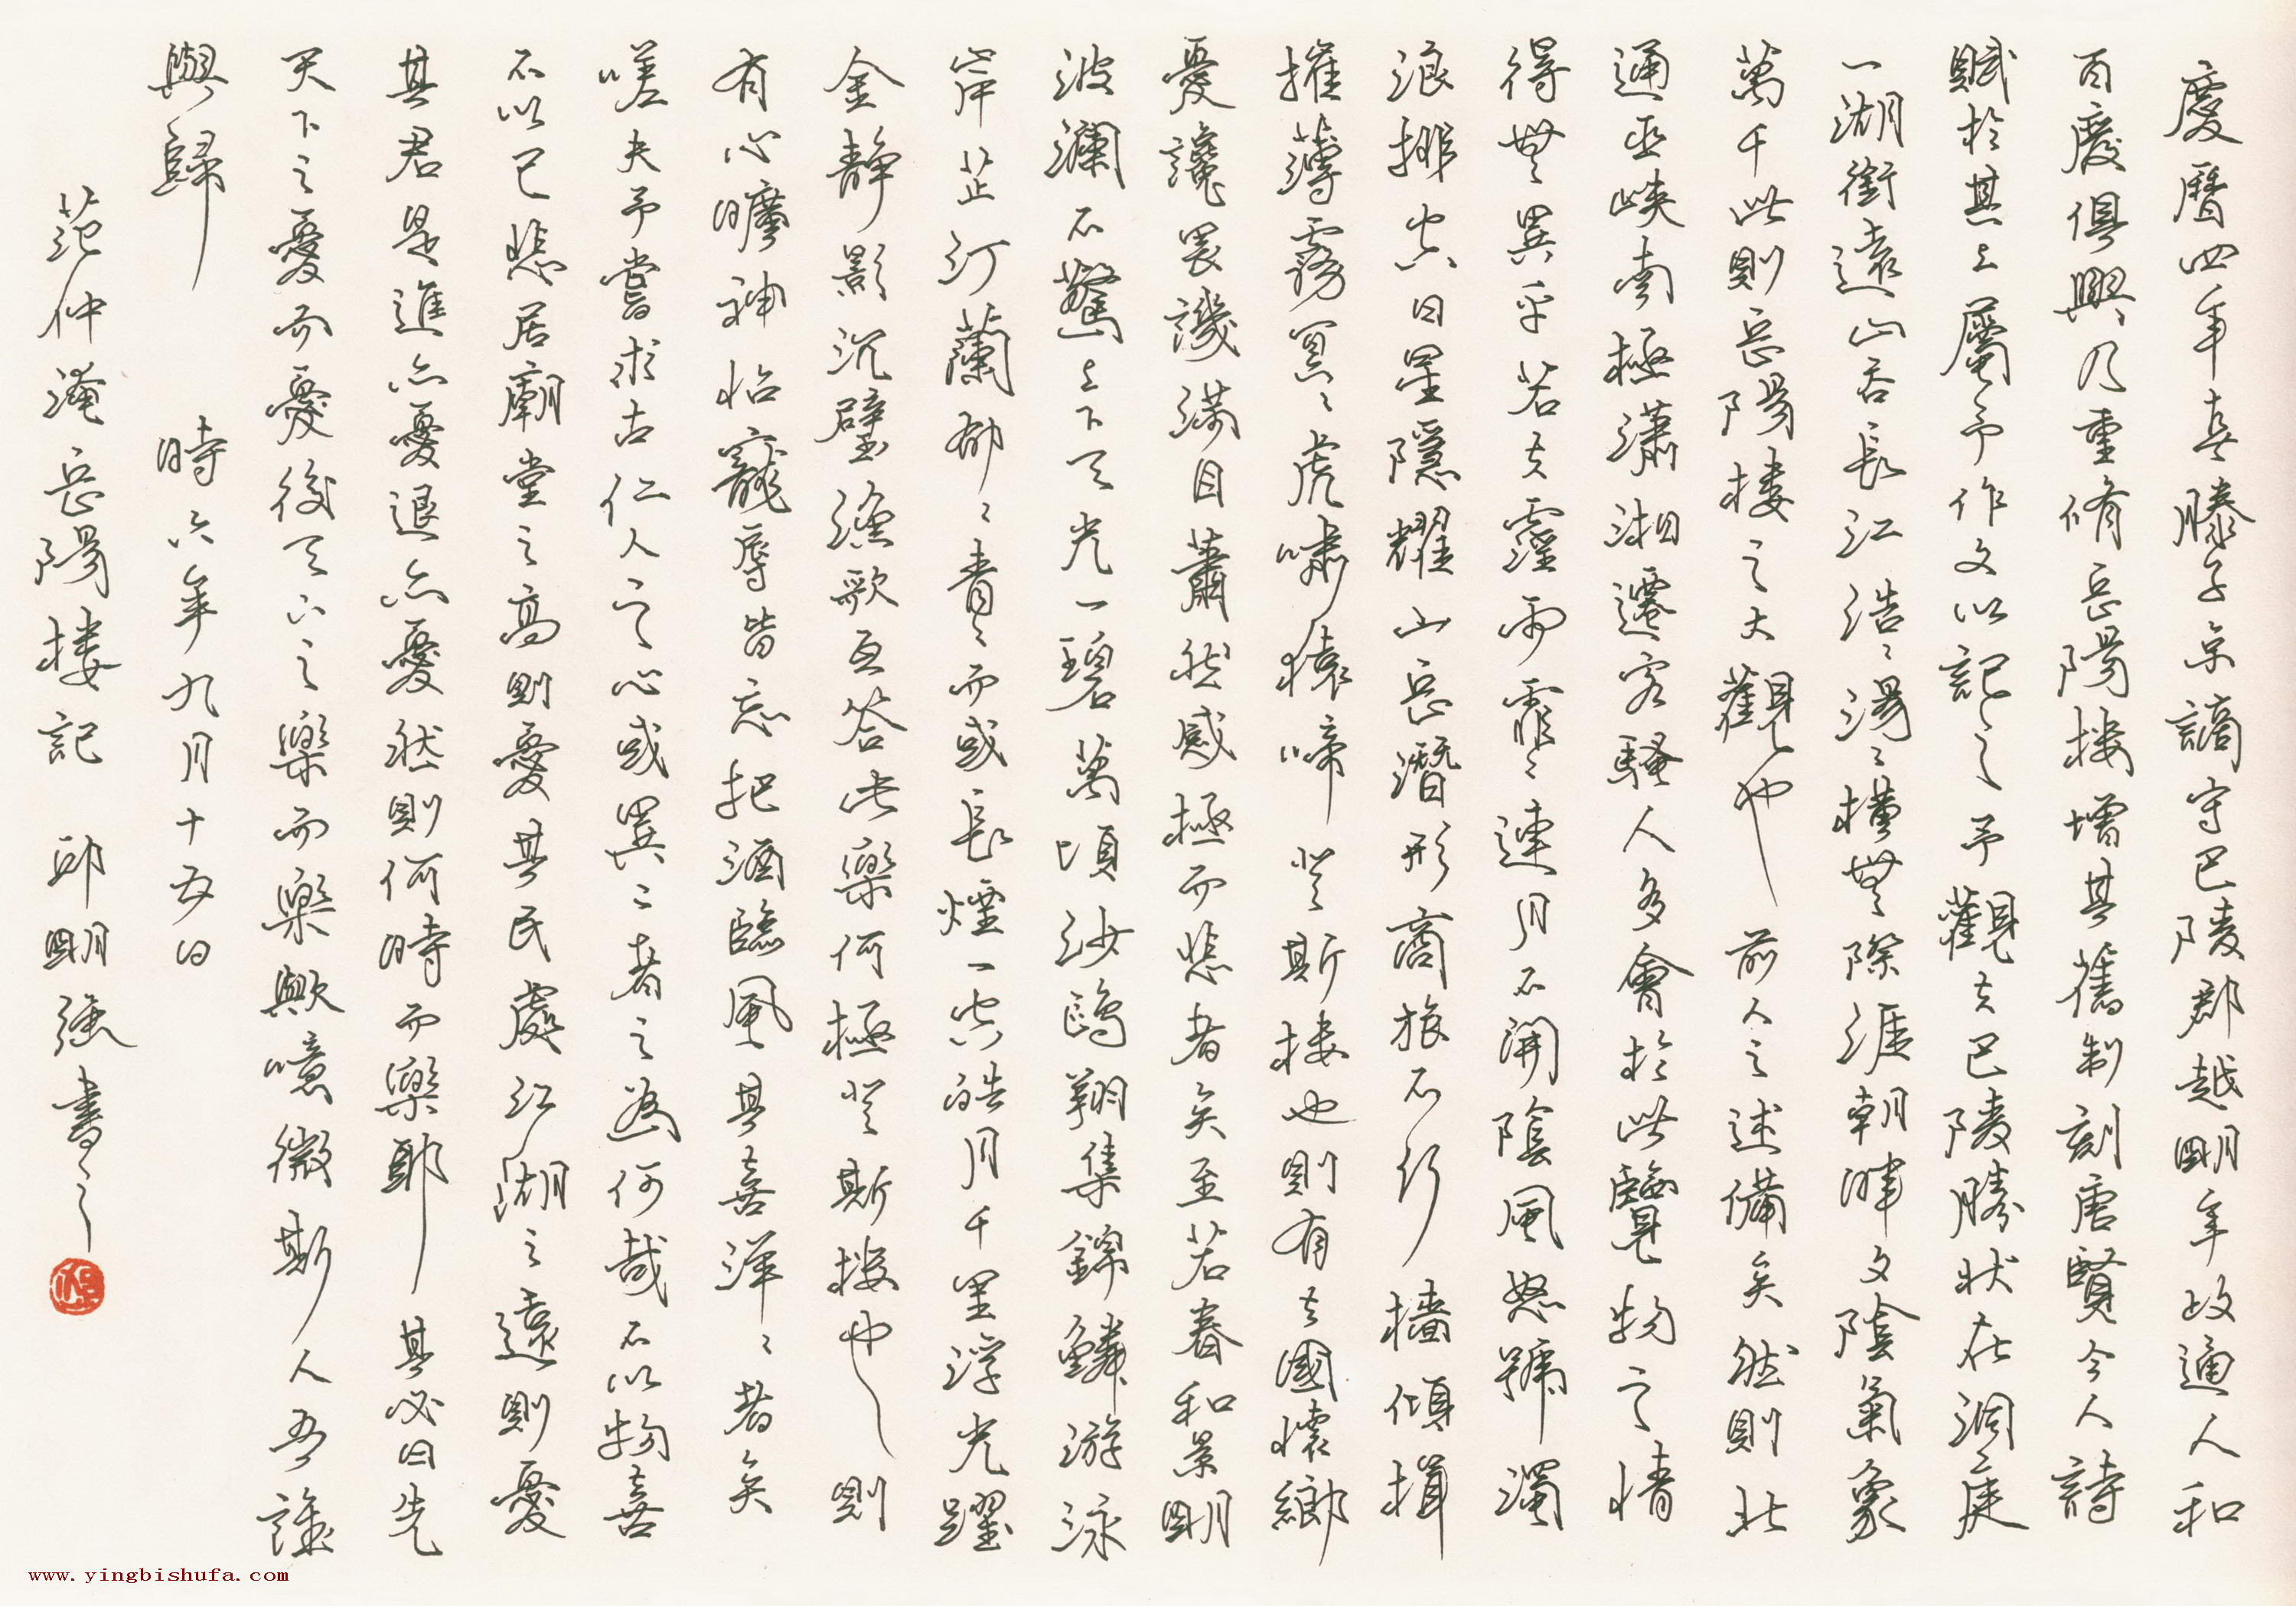 慶曆四年春滕子京謫守巴陵郡越明年政通人和
百廢俱興乃重脩岳陽楼增其舊制刻唐賢今人詩
賦於其上屬予作文以記之予觀夫巴陵勝状在洞庭
一湖銜遠山吞長江浩〻湯〻橫無際涯朝暉夕陰氣象
萬千此則岳陽楼之大觀也前人之述備矣然則北
通巫峽南極瀟湘遷客騷人多會於此覽物之情
得無異乎若夫霪雨霏〻連月不開陰風怒號濁
浪排空日星隱耀山岳潛形商旅不行檣傾楫
摧薄霧冥〻虎嘯猿啼登斯楼也則有去國懷鄉
憂讒畏譏滿目蕭然感極而悲者矣至若春和景明
波瀾不驚上下天光一碧萬頃沙鷗翔集錦鱗游泳
岸芷汀蘭郁〻青〻而或長煙一空皓月千里浮光躍
金靜影沉璧漁歌互答此樂何極登斯楼也則
有心曠神怡寵辱皆忘把酒臨風其喜洋〻者矣
嗟夫予嘗求古仁人之心或異二者之為何哉不以物喜
不以己悲居廟堂之高則憂其民處江湖之遠則憂
其君是進亦憂退亦憂然則何時而樂耶其必曰先
天下之憂而憂後天下之樂而樂歟噫微斯人吾誰
與歸 時六年九月十五日
范仲淹岳陽楼記 邱明強書之
www.yingbishufa.com